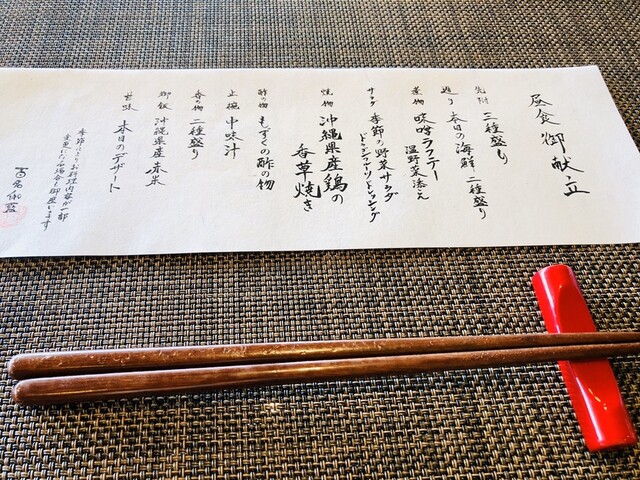 昼食御献立
先附 三種盛り
造り 本日の海鮮二種盛り
煮物 味噌ラフテー
温野菜添え
サラダ 季節の野菜サラダ
ドラゴンフルーツドレッシング
焼物 沖縄県産鶏の
香草焼き
酢の物 もずくの酢の物
止椀 中味汁
香の物 二種盛り
御飯 沖縄県産赤米
甘味 本日のデザート
季節によりお料理内容が一部
変更になる場合が御座います